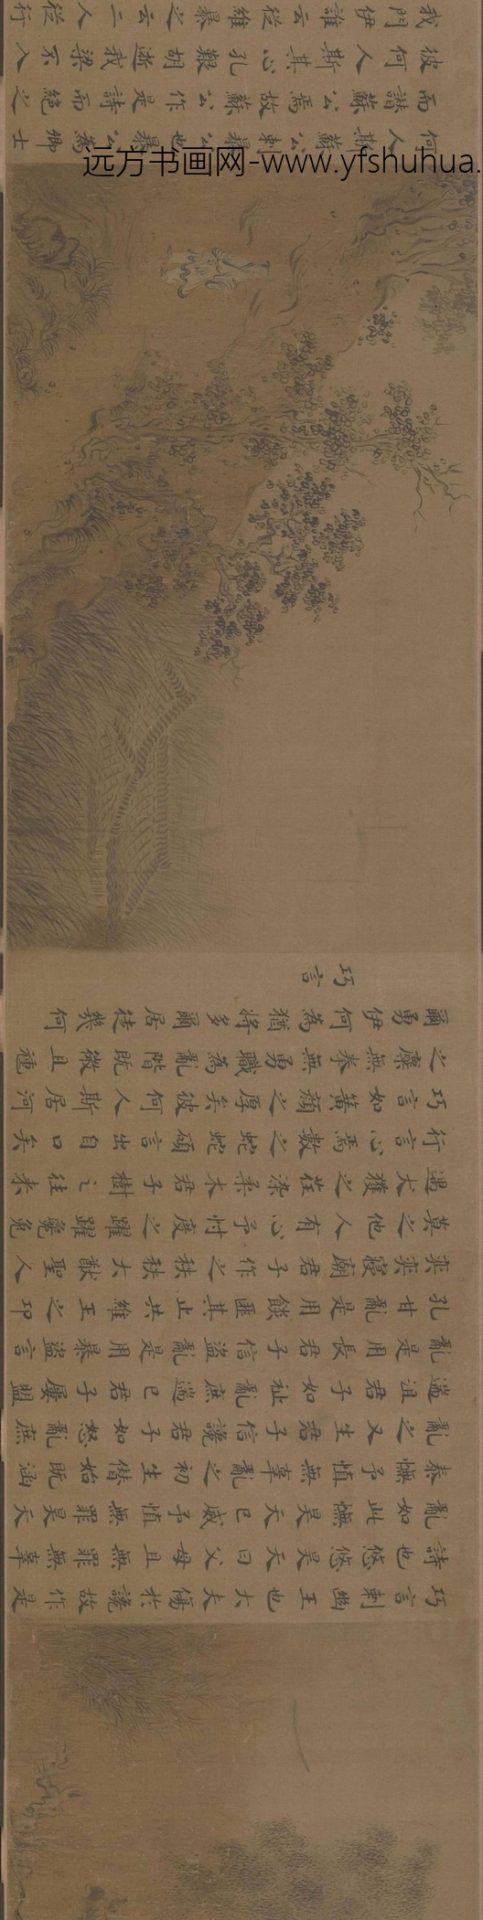 巧言刺幽王也大夫傷於讒故作是
詩也悠悠昊天曰父母且無罪無辜
亂如此憮昊天已威予慎無罪昊天
泰憮予慎無辜亂之初生僭始既涵
亂之又生君子信讒君子如怒亂庶
遄沮君子如祉亂庶遄已君子屢盟
亂是用長君子信盜亂是用暴盜言
孔甘亂是用餤匪其止共維王之邛
奕奕寢廟君子作之秩秩大猷聖人
莫之他人有心予忖度之躍躍毚兔
遇犬獲之荏染柔木君子樹之往來
行言心焉數之蛇蛇碩言出自口矣
巧言如簧顏之厚矣彼何人斯居河
之麋無拳無勇職為亂階既微且尰
爾勇伊何為猶將多爾居徒幾何
巧言
何人斯蘇公刺暴公也暴公為卿士
而譖蘇公焉故蘇公作是詩而絕之
彼何人斯其心孔艱胡逝我梁不入
我門伊誰云從維暴之云二人從行
远方书画网-www.yfshuhua.